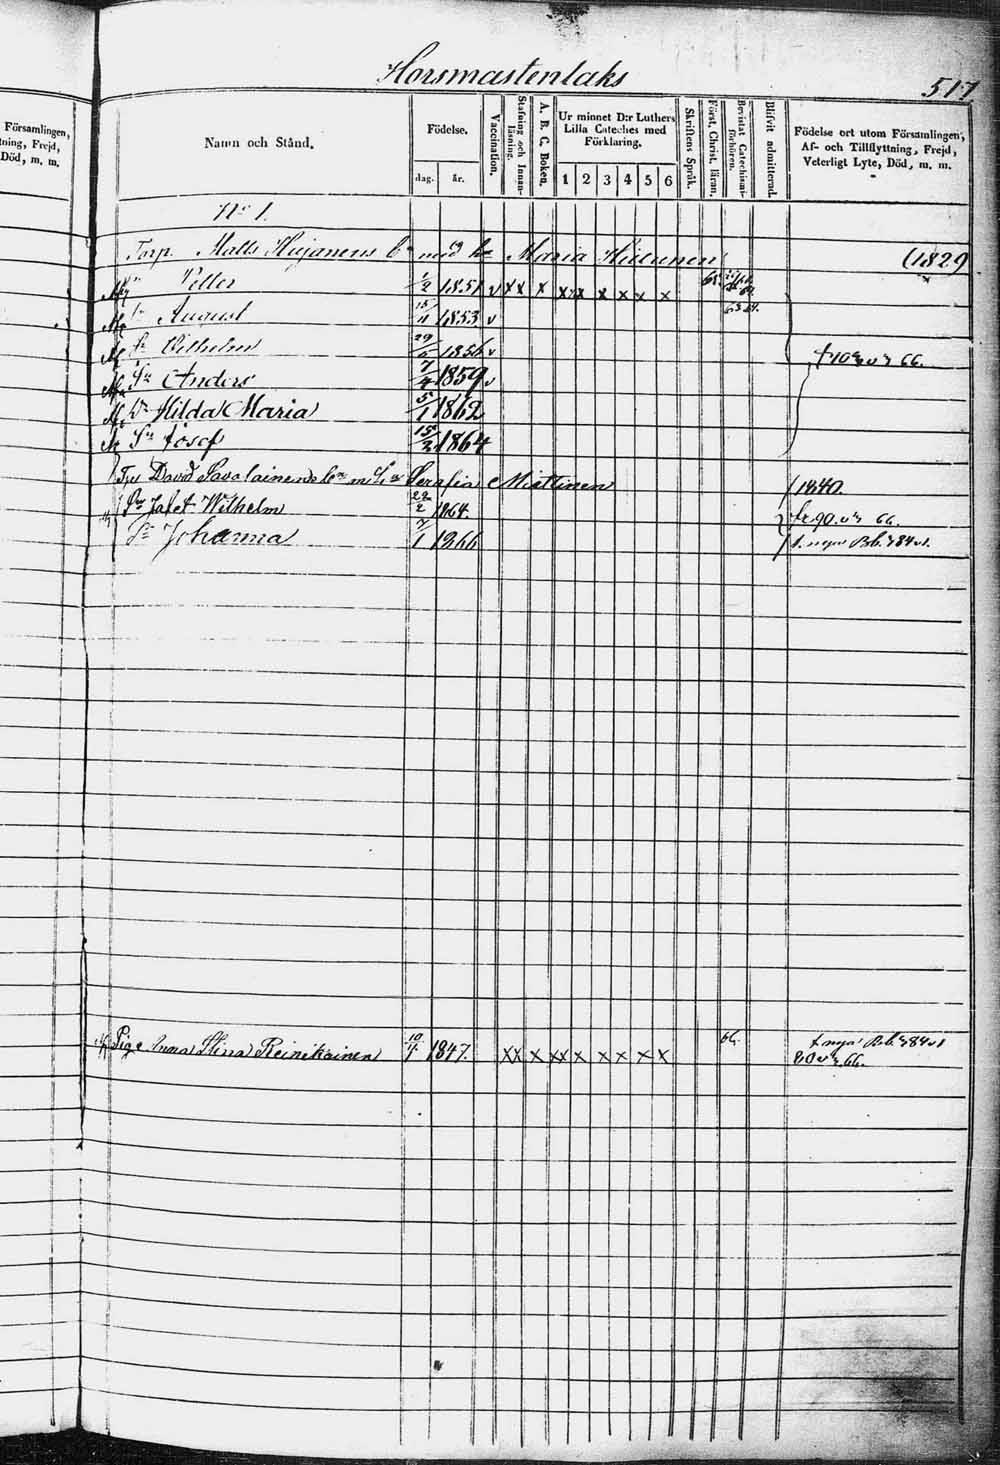 Horsmastenlaks
517
Församlingen,
ning, Frejd,
Död, m. m.
Namn och Stånd.
Födelse.
dag. år.
Vaccination.
Stafning och Innan-
läsning.
A. B. C. Boken.
Ur minnet D:r Luthers
Lilla Cateches med
Förklaring.
1 2 3 4 5 6
Skriftens Språk.
Först. Christ. läran.
Bevistat Catechismi-
förhören.
Blifvit admitterad.
Födelse ort utom Församlingen,
Af- och Tillflyttning, Frejd,
Veterligt Lyte, Död, m. m.
No 1.
Torp. Matts Hujanens med h Maria (1829
Petter 1/2 1851 v x x x x x x x x x x
August 15/11 1853 v
Wilhelm 29/6 1856 v 66.
Sn Anders 7/4 1859 v
Dr Hilda Maria 5/1 1862
Sn Josef 15/2 1864
David Savolainens Serafia Miettinen 1840.
Sn Jafet Wilhelm 22/2 1864. 66.
Johanna 7/1 1866 nya Bb. 784
Piga Anna Stina Reinikainen 10/ 1847. x x x x x x x x x x 66. nya Bb. 784
66.